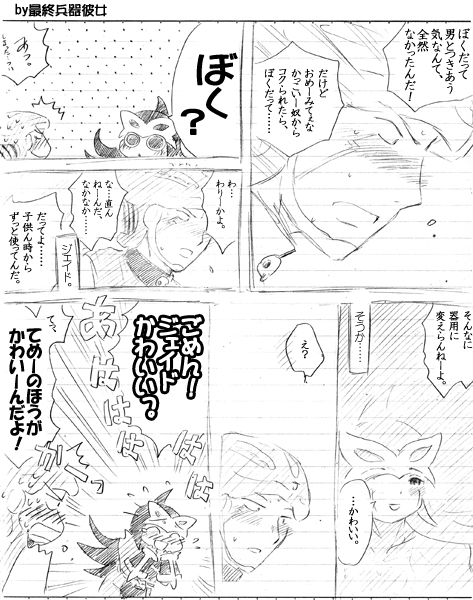 by最終兵器彼女
ぼくだって
男とつきあう
気なんて、
全然
なかったんだ！
だけど
おめーみてぇな
かっこいー奴から
コクられたら、
ぼくだって……
ぼく？
あっ。
しまった…！
わ…
わりーかよ。
な…直ん
ねーんだ、
なかなか……
ジェイド。
だってよ……
子供ん時から
ずっと使ってんだ。
そんなに
器用に
変えらんねーよ。
そうか……
…かわいい。
え？
ごめん！
ジェイド
かわいいっ。
あはははははは
てめーのほうが
かわいーんだよ！
かーっ